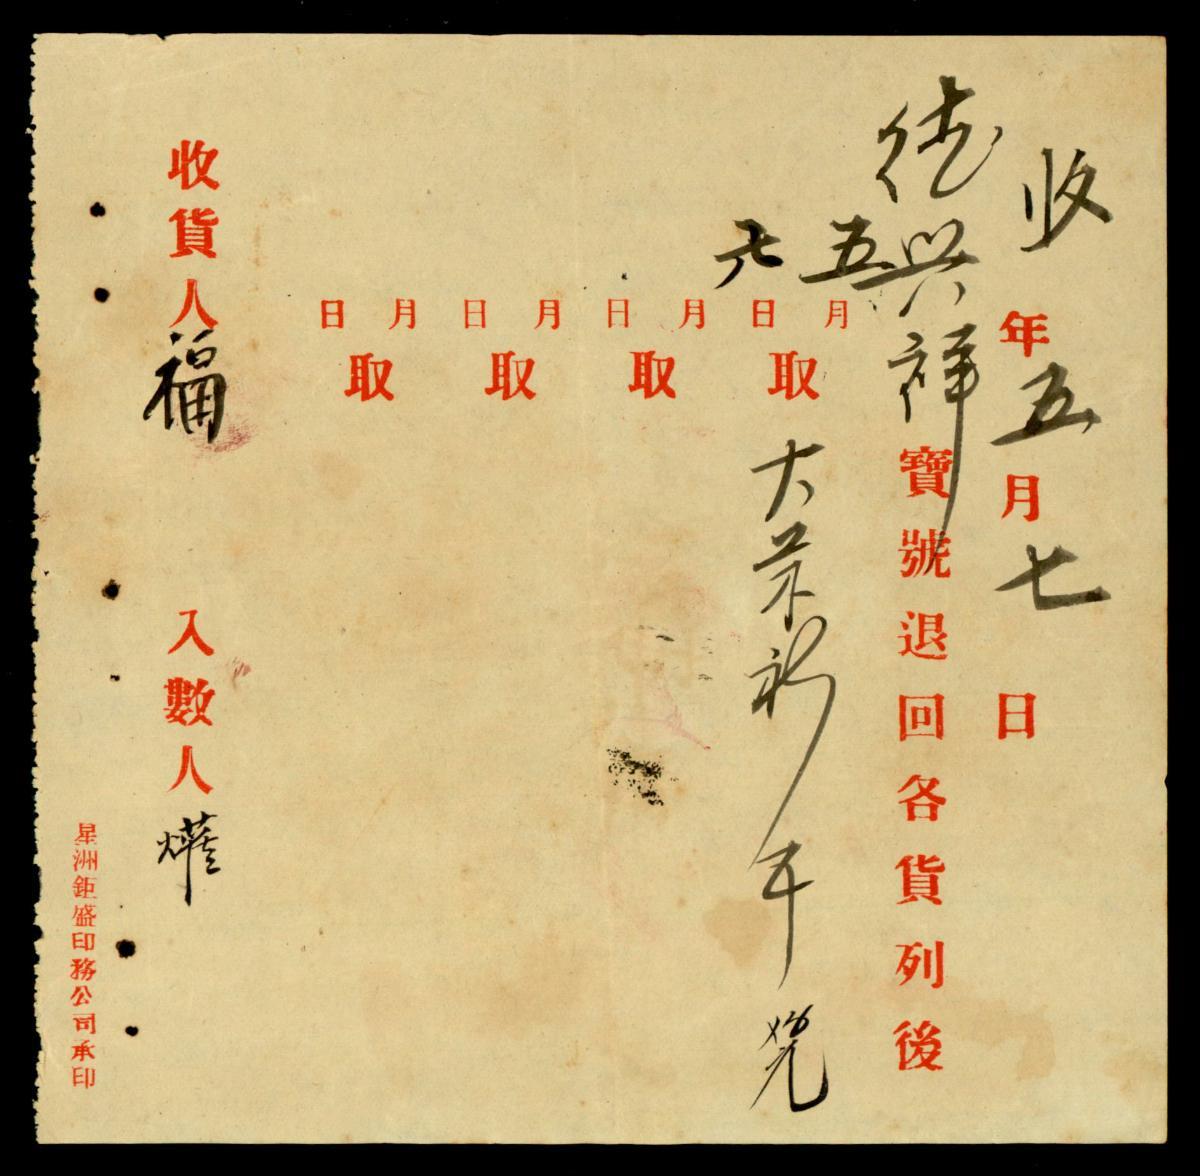 收 年五月七日
德兴祥寶號退回各貨列後
五月 日取 大
月日取
月日取
月日取
收貨人福 入數人
星洲鉅盛印務公司承印